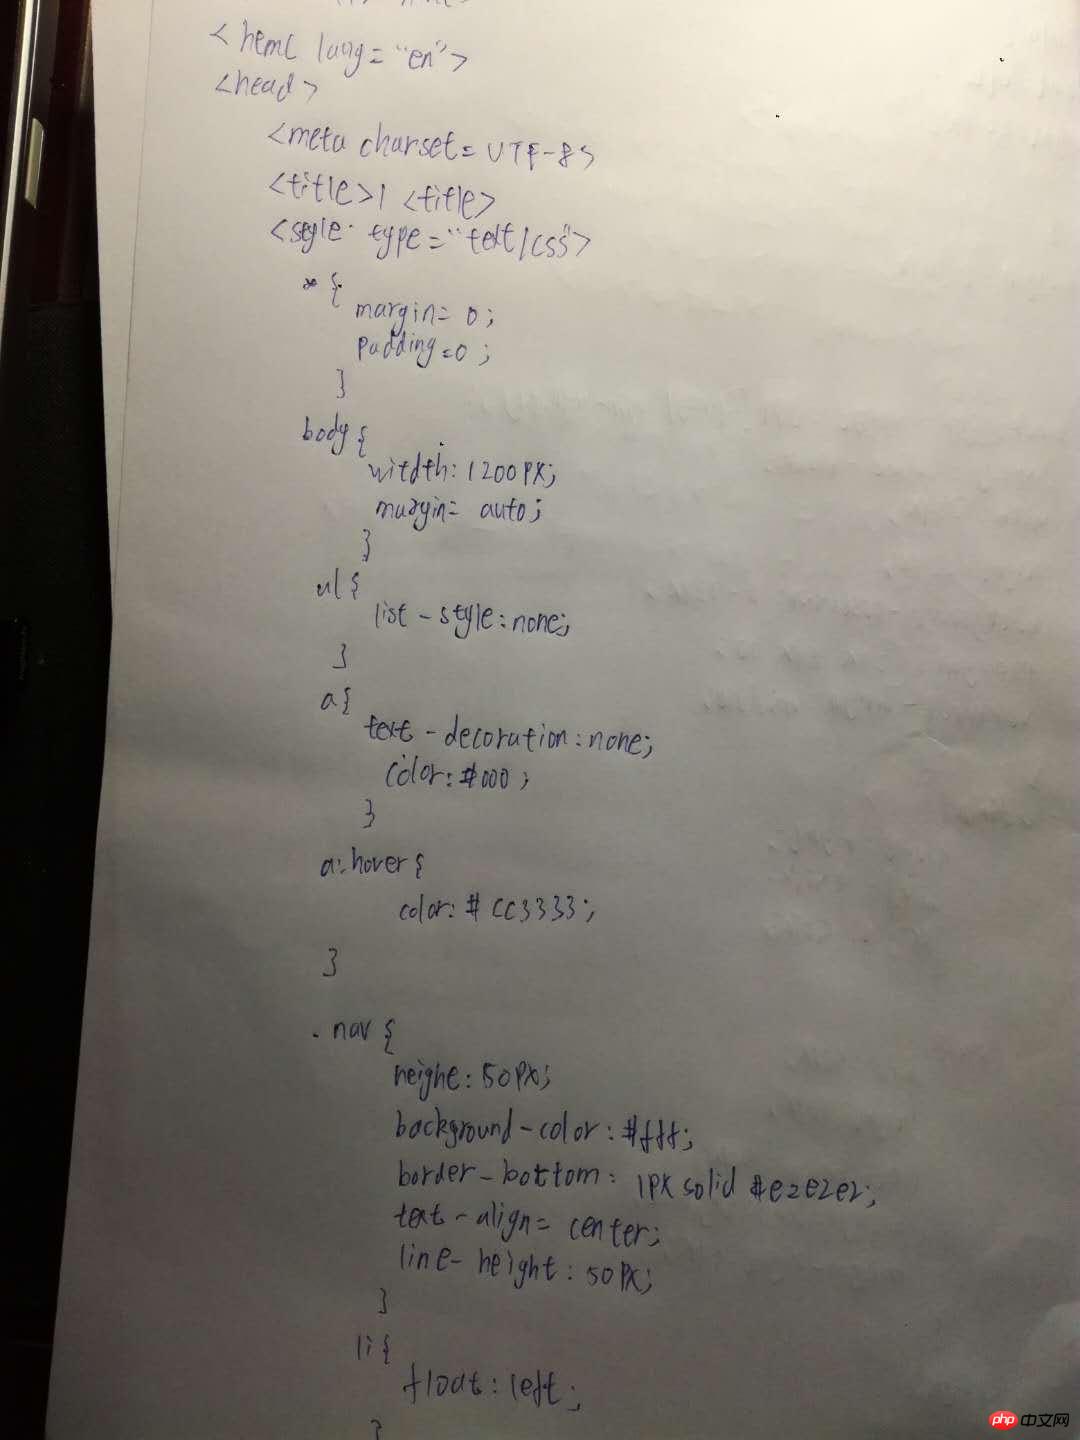 < heml lang = "en">
<head>
<meta charset = UTF-8>
<title>1 <title>
<style type = "text/css">
* {
margin= 0;
padding=0;
}
body{
witdth: 1200px;
margin= auto;
}
ul{
list-style:none;
}
a{
text-decoration:none;
color:#000;
}
a:hover{
color:# CC3333;
}
.nav{
heighe: 50px;
background-color: #fff;
border-bottom: 1px solid #e2e2e2;
text-align= center;
line-height: 50px;
}
li{
float: left;
}
php 中文网